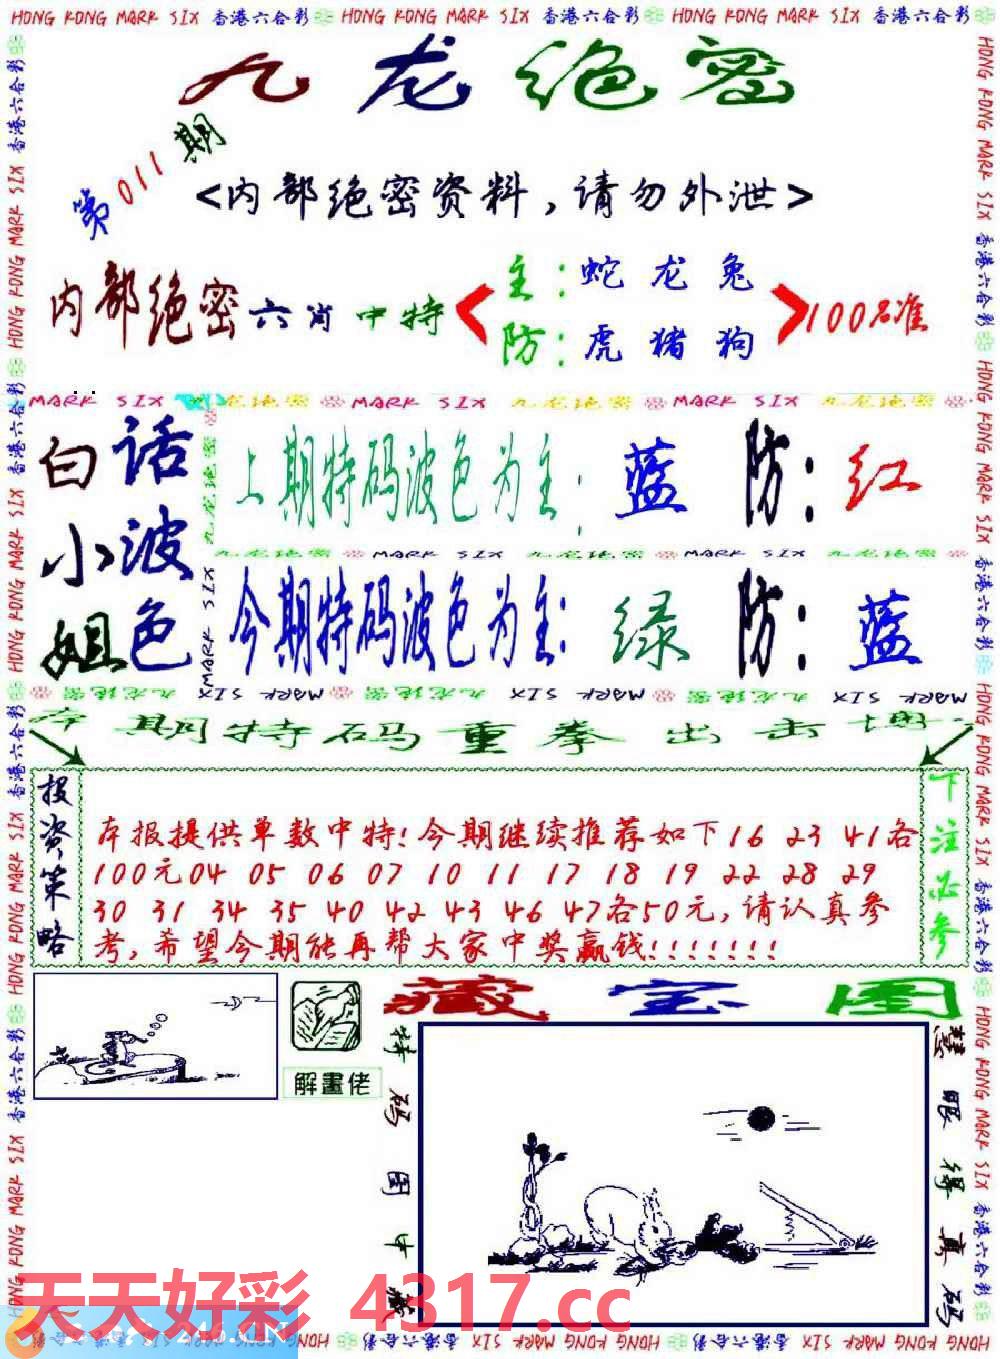 HONG KONG MARK SIX 香港六合彩 HONG KONG MARK SIX 香港六合彩 HONG KONG MARK SIX 香港六合彩
九龙绝密
第011期
<内部绝密资料,请勿外泄>
内部绝密六肖中特
主:蛇龙兔
防:虎猪狗
100%准
MARK SIX 九龙绝密 MARK SIX 九龙绝密 MARK SIX 九龙绝密
白小姐
话波色
上期特码波色为主:蓝 防:红
九龙绝密 MARK SIX 九龙绝密 MARK SIX 九龙绝密
今期特码波色为主:绿 防:蓝
本期特码重拳出击
投资策略
本报提供单数中特!今期继续推荐如下16 23 41各
100元04 05 06 07 10 11 17 18 19 22 28 29
30 31 34 35 40 42 43 46 47各50元,请认真参
考,希望今期能再帮大家中奖赢钱!!!!!!!
下注必参
解畫佬
藏宝图
特码图中藏
慧眼得真码
天天好彩 4317.cc